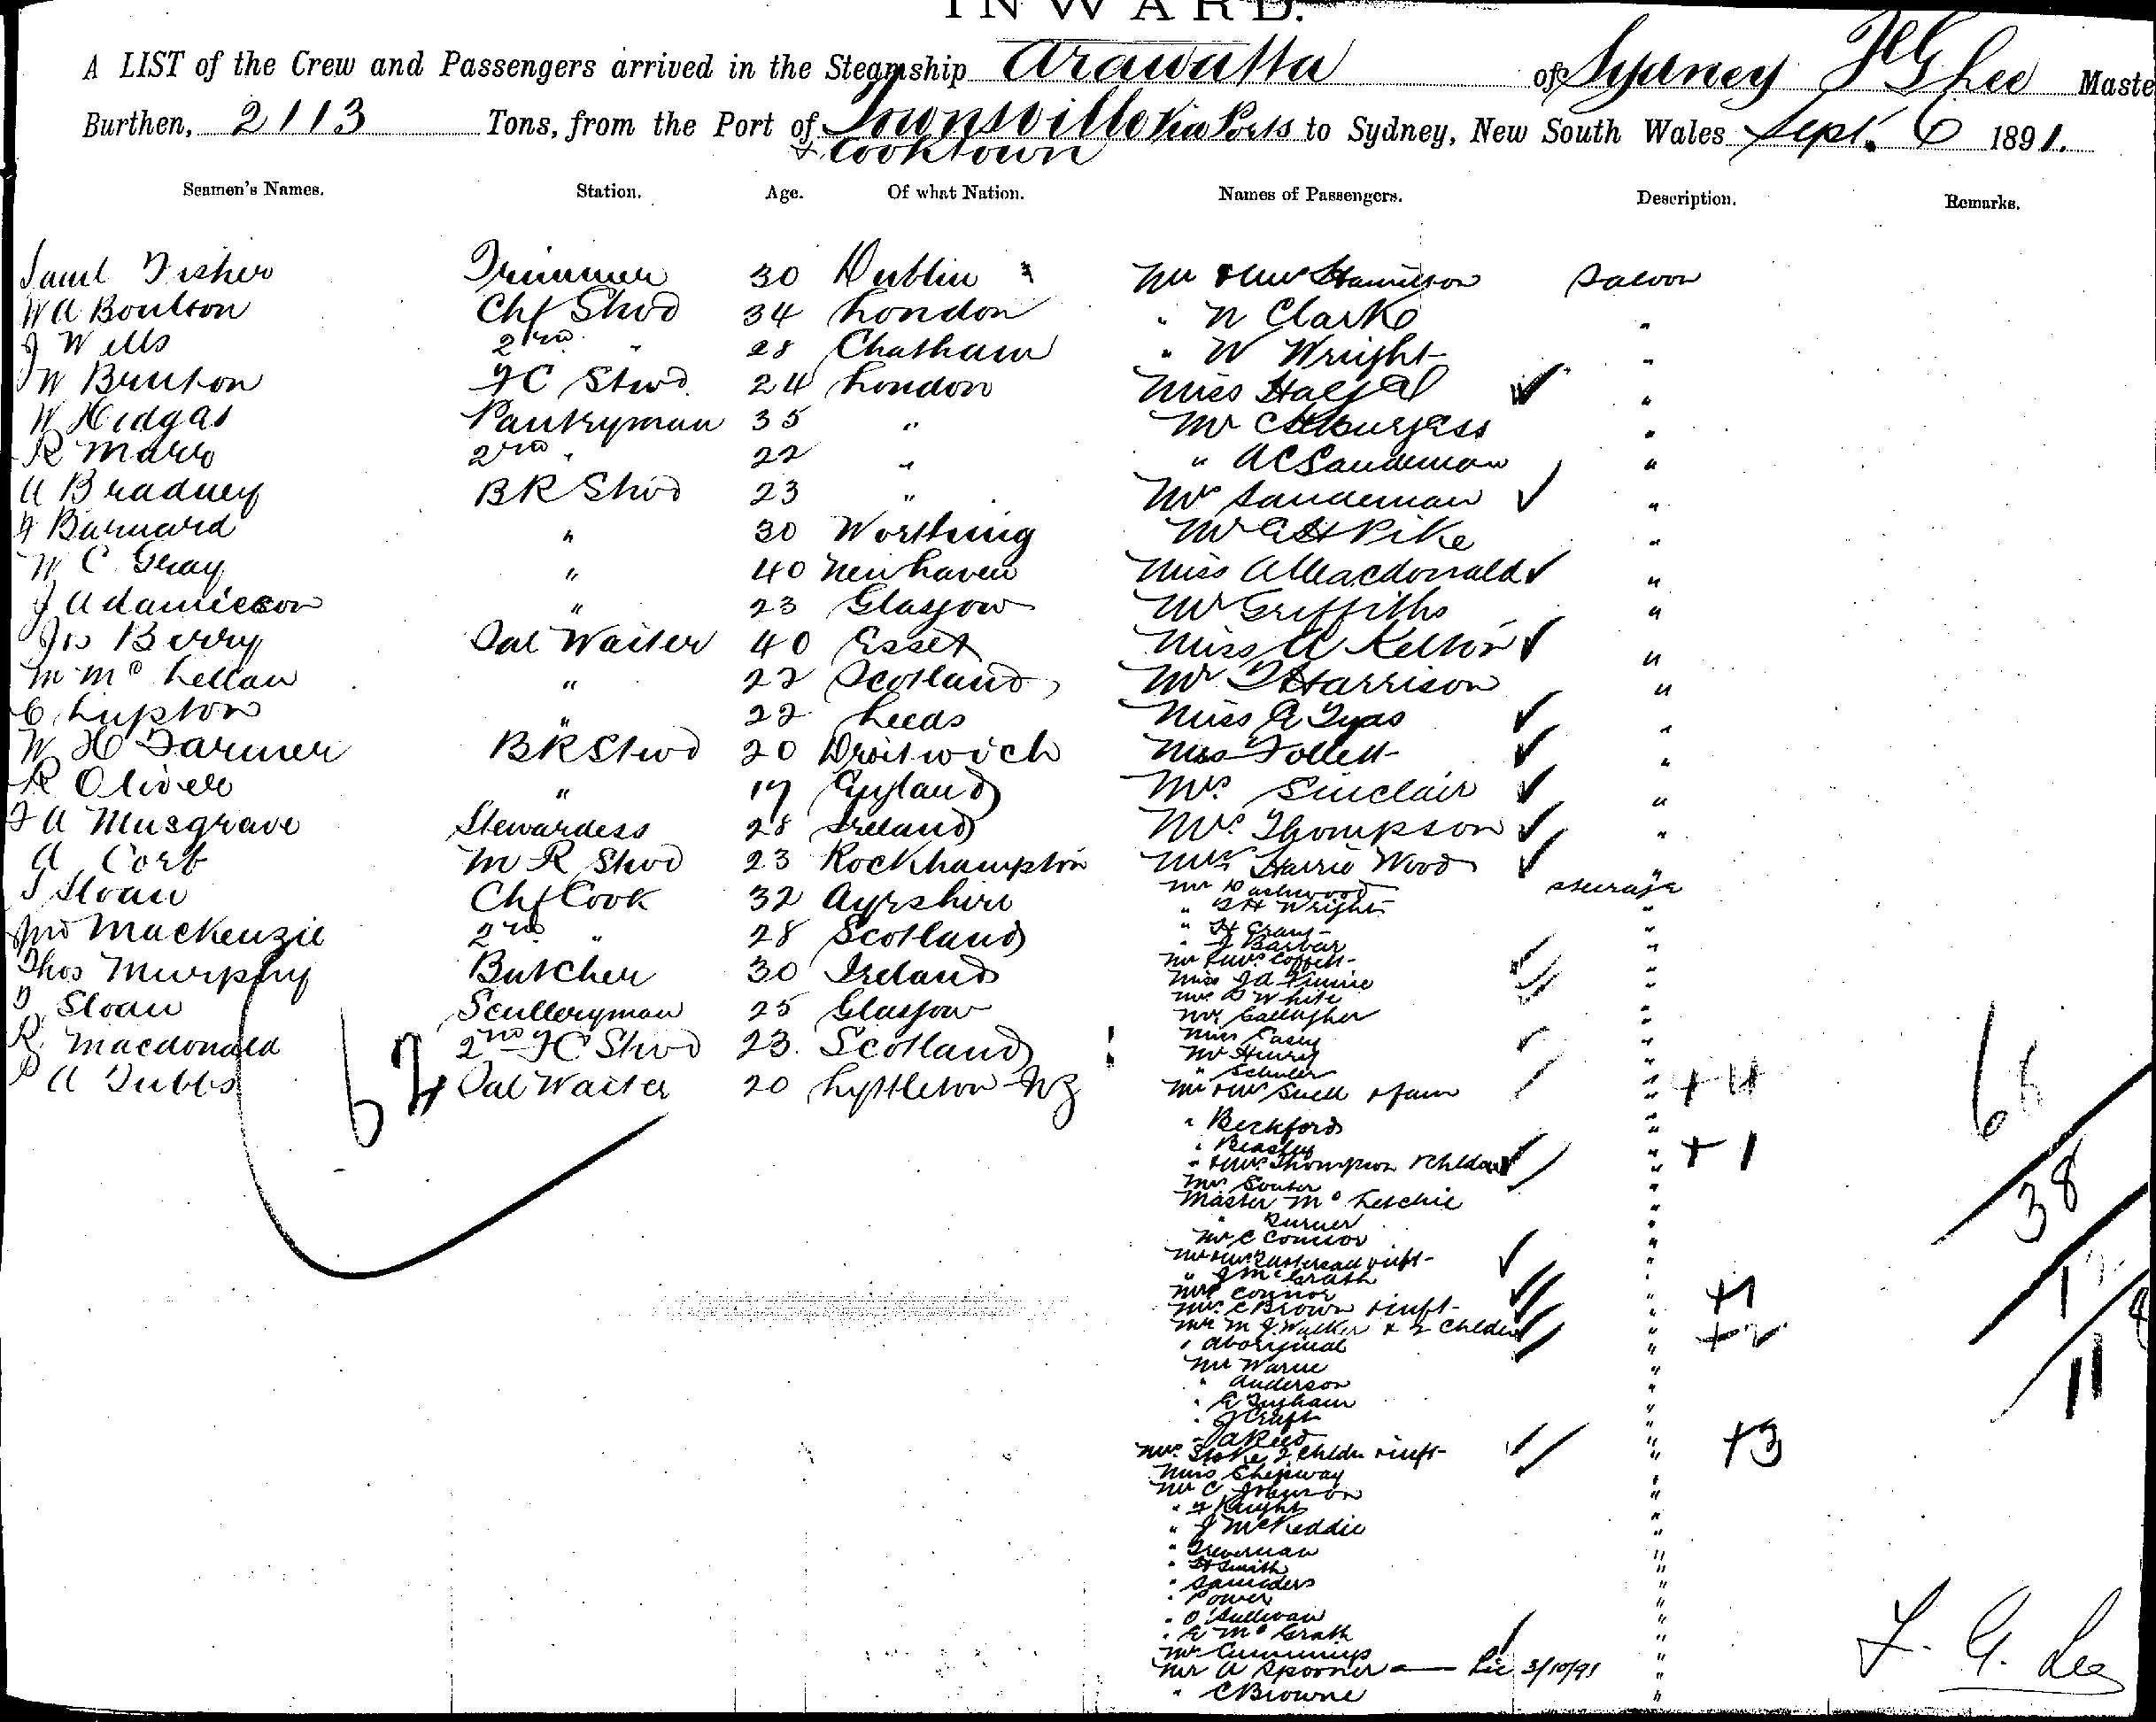 INWARD.
A LIST of the Crew and Passengers arrived in the Steamship Arawatta of Sydney Lee Maste
Burthen, 2113 Tons, from the Port of Townsville via Ports to Sydney, New South Wales Sept. 6 1891.
& Cooktown
Seamen's Names. Station. Age. Of what Nation. Names of Passengers. Description. Remarks.
Saml Fisher Trimmer 30 Dublin Mr & Mrs Hamilson Saloon
W A Boulton Chf Stwd 34 London " N Clarke "
J Wells 2nd " 28 Chatham " W Wright "
W Brunton FC Stwd 24 London Miss "
W Hidgas Pantryman 35 " Mr Burgess "
R Marr 2nd " 22 " " A C Sandeman "
A Bradney BR Stwd 23 " Mrs Sandeman "
F Barnard " 30 Worthing Mr Pike "
W C Gray " 40 Newhaven Miss A Macdonald "
J Adamieson " 23 Glasgow Mr Griffiths "
Jos Berry Sal Waiter 40 Essex Miss A "
M Mc Lellan " 22 Scotland Mr Harrison "
C Lupton " 22 Leeds Miss Tyas "
W H Farmer BR Stwd 20 Droitwich Miss Follett "
R Oliver " 17 England Mrs. Sinclair "
F A Musgrave Stewardess 28 Ireland Mrs. Thompson "
A Corb M R Stwd 23 Rockhampton Harrie Wood "
Sloan Chf Cook 32 Ayrshire Mr Dashwood steerage
" Wright "
Jno Mackenzie 2nd " 28 Scotland " H Grant "
" J Barbar "
Thos Murphy Butcher 30 Ireland Mr & Mrs "
Miss "
Sloan Sculleryman 25 Glasgow Mrs White "
Mrs Gallagher "
R. Macdonald 2nd FC Stwd 23. Scotland Miss Casey "
Mr Henry "
" Schuler "
A Tubbs Sal Waiter 20 Lyttleton NZ Mr & Mrs Snell & fam " +4
62
66
" Beckford "
" Beasley "
" & Mrs Thompson & Child " +1
Mrs Souter "
Master Mc "
38
" Turner "
Mr C Connor "
Mr & Mrs inft "
" J McGrath "
Mrs Connor " +1
Mrs C Brown & inft "
Mr M J Walker & 2 Children " +2
" aboriginal "
Mr Warne "
" Anderson "
11
" Ingham "
" J Craft "
" Reid "
Mrs Stoke 2 Childn & inft " +3
Miss Chipway "
Mr C Johnson "
" Knight "
" J McKeddie "
" "
" H Smith "
" Saunders "
" Power "
" O'Sullivan "
" E Mc Grath "
Mr Cummings "
Mr A Spooner 3/10/91 "
" C Browne "
Lee